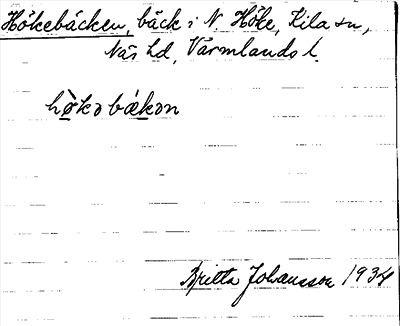 Hökebäcken, bäck i N. Höke, Kila sn,
Näs hd, Värmlands l.
hø̀kəbǽkən
Britta Johansson 1934